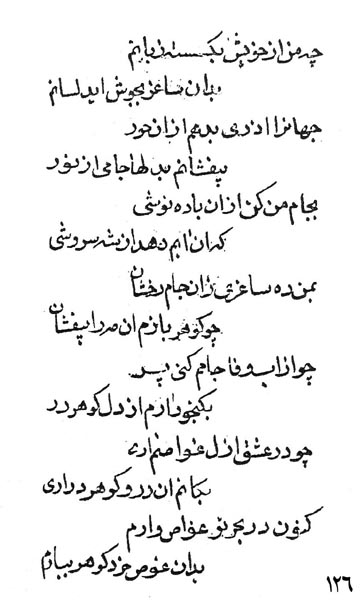 چه من از خویش بگسستن بایم
بدان ساغر بجوش اید لسانم
جهانرا اذری بدهم از ان خور
بیفشانم بدلها جامی از نور
بجام من کن از ان باده نوشی
که ان ایم دهد از شه سروشی
بمن ده ساغری زان جام رخشان
چو کوهر بازم ان در را بیفشان
چو از اب وفا جامم کنی پر
بکنجو دارم از دل کوهر در
چو در عشق ازل غواصم اری
بکانم ان در و کوهر در اری
کنون در بحر تو غواص وارم
بدان غوص خرد کوهر ببارم
۱۲۶